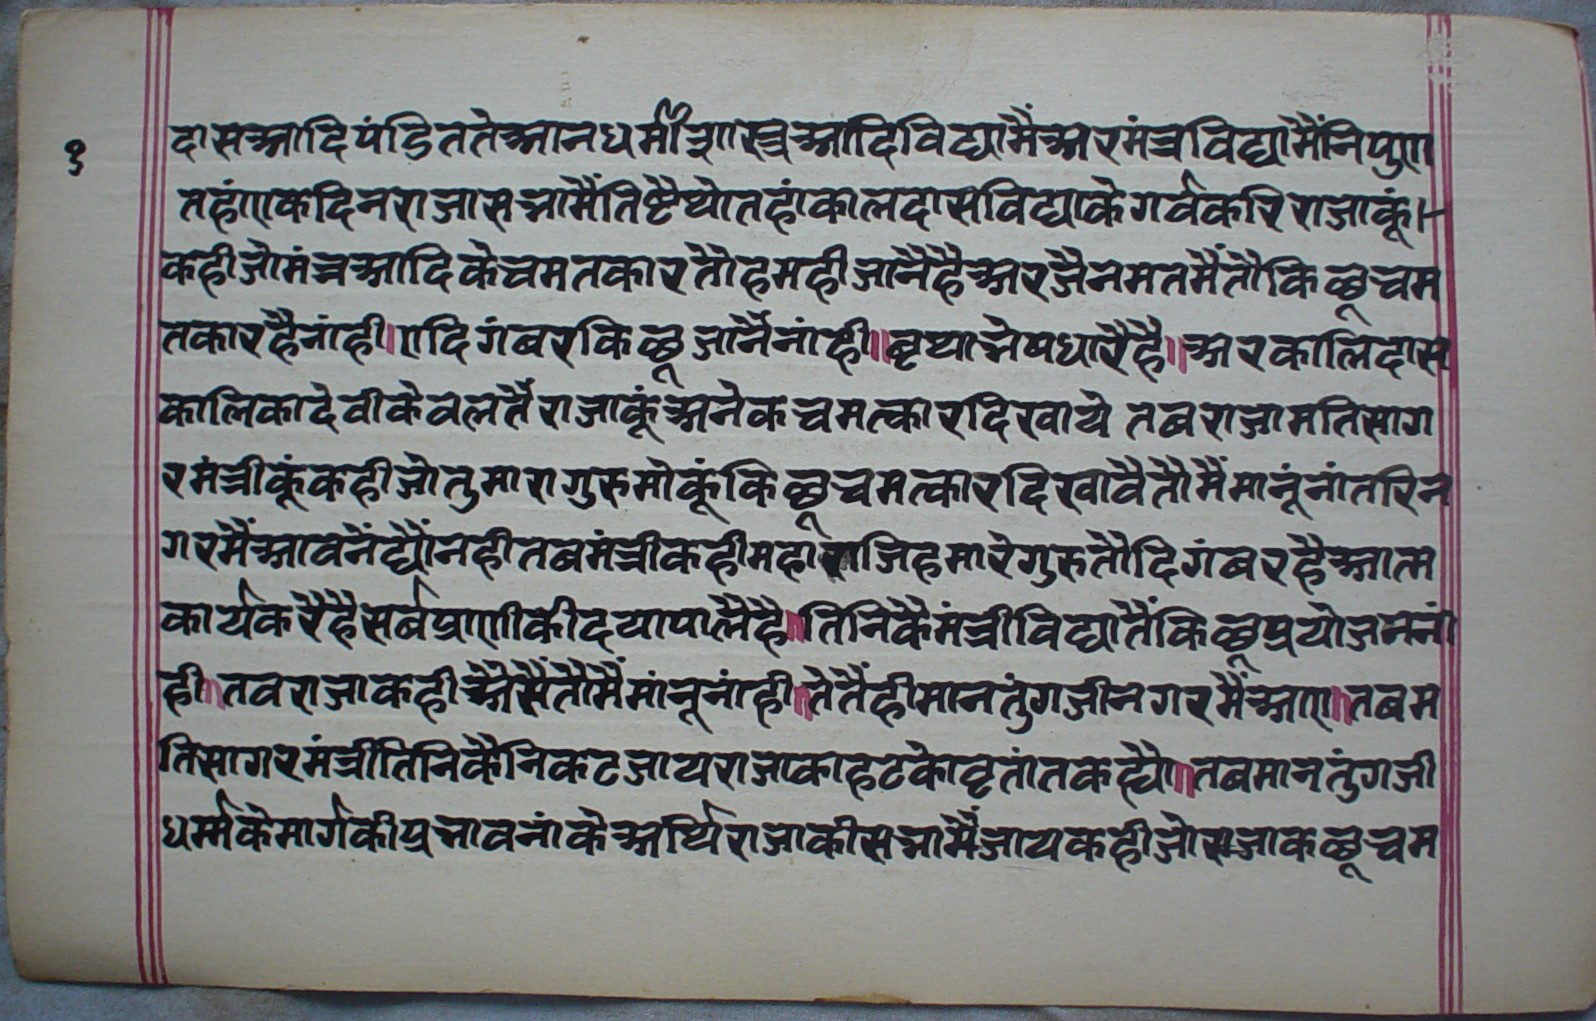 १
दासआदिपंडिततेआनधर्मीशास्त्रआदिविद्यामैंअरमंत्रविद्यामैंनिपुण
तहांएकदिनराजासभामैंतिष्टैथोतहांकालदासविद्याकेगर्वकरिराजाकूं।
कहीजोमंत्रआदिकेचमतकारतौहमहीजानैहैअरजैनमतमैंतौकिछूचम
तकारहैनांही॥एदिगंबरकिछूजानैंनांही॥वृथाभेषधारैहै॥अरकालिदास
कालिकादेवीकेवलतैंराजाकूंअनेकचमत्कारदिखाये तबराजामतिसाग
रमंत्रीकूंकहीजोतुमारागुरुमोकूंकिछूचमत्कारदिखावैतौमैंमानूंनांतरिन
गरमैंआवनैंद्यौंनहीतबमंत्रीकहीमहाराजिहमारेगुरुतौदिगंबरहैआत्म
कार्यकरैहैसर्बप्राणीकीदयापालैहै॥तिनिकैमंत्रीविद्यातैंकिछूप्रयोजननां
ही॥तवराजाकहीऔसैंतौमैंमांनूनांही॥तेतैंहीमानतुंगजीनगरमैंआए॥तबम
तिसागरमंत्रीतिनिकैनिकटजायराजाकाहटकोवृतांतकह्यौ॥तबमानतुंगजी
धर्म्मकैमार्गकीप्रभावनांकेअर्थिराजाकीसभामैंजायकहीजोराजाकछूचम